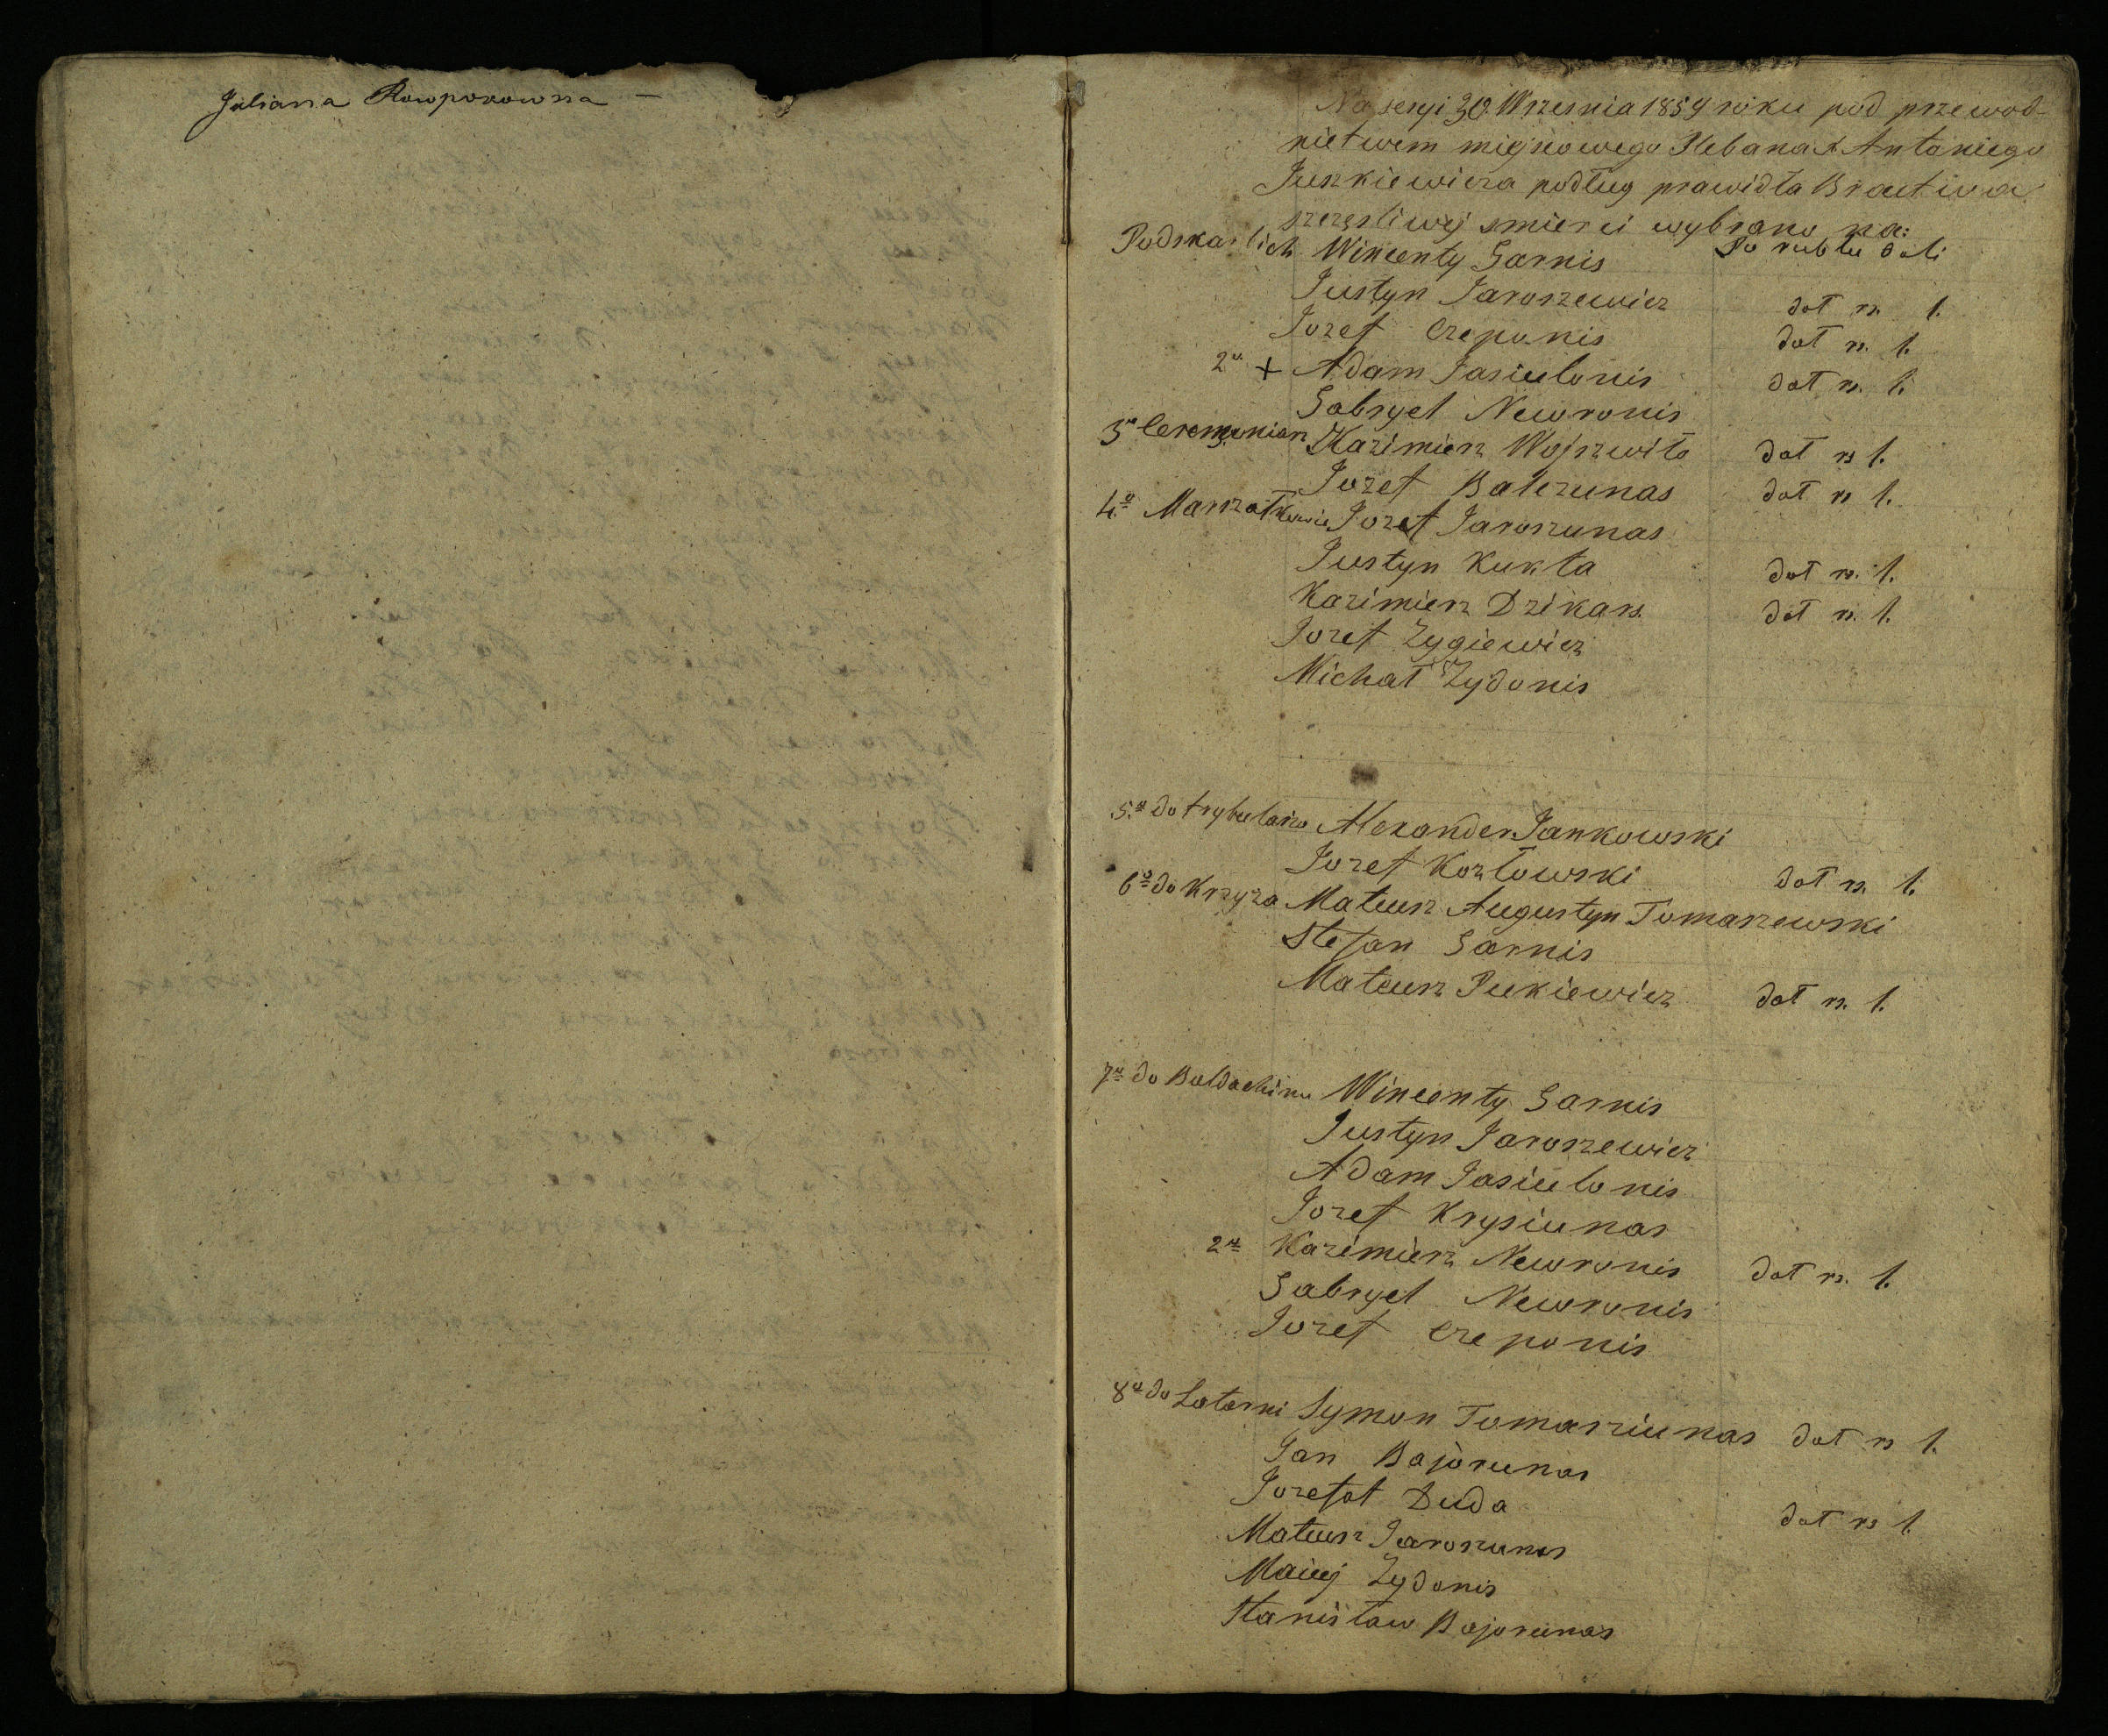 Juliana Rowporowna –
Na sesyi 30. Wrzesnia 1859 roku pod przewod-
nictwem miejscowego Plebana X Antoniego
Juszkiewicza podług prawidła Bractwa
szczęsliwej smierci wybrano na:
Podskarbich Wincenty Garnis Po rublu dali
Justyn Jaroszewicz dał rs. 1.
Jozef Czeponis dał rs. 1.
2º + Adam Jasiulonis dał rs. 1.
Gabryel Newronis
3º Ceremoniarz Kazimierz Wojszwiło dał rs 1.
Jozef Balczunas dał rs 1.
4º Marszałkowie Jozef Jaroszunas
Justyn Kukta dał rs. 1.
Kazimierz Dzikars. dał rs. 1.
Jozef Zygiewicz
Michał Zydonis
5º do trybularza Alexander Jankowski
Jozef Kozłowski dał rs. 1.
6º do Krzyza Mateusz Augustyn Tomaszewski
Stefan Garnis
Mateusz Pukiewicz dał rs. 1.
7º do Baldachinu Wincenty Garnis
Justyn Jaroszewicz
Adam Jasiulonis
Jozef Krysiunas
2º Kazimierz Newronis dał rs. 1.
Gabryel Newronis
Jozef Czeponis
8º do Latarni Symon Tomasziunas dał rs 1.
Jan Bajorunas
Jozefat Duda dał rs 1.
Mateusz Jaroszunas
Maciej Zydonis
Stanisław Bajorunas